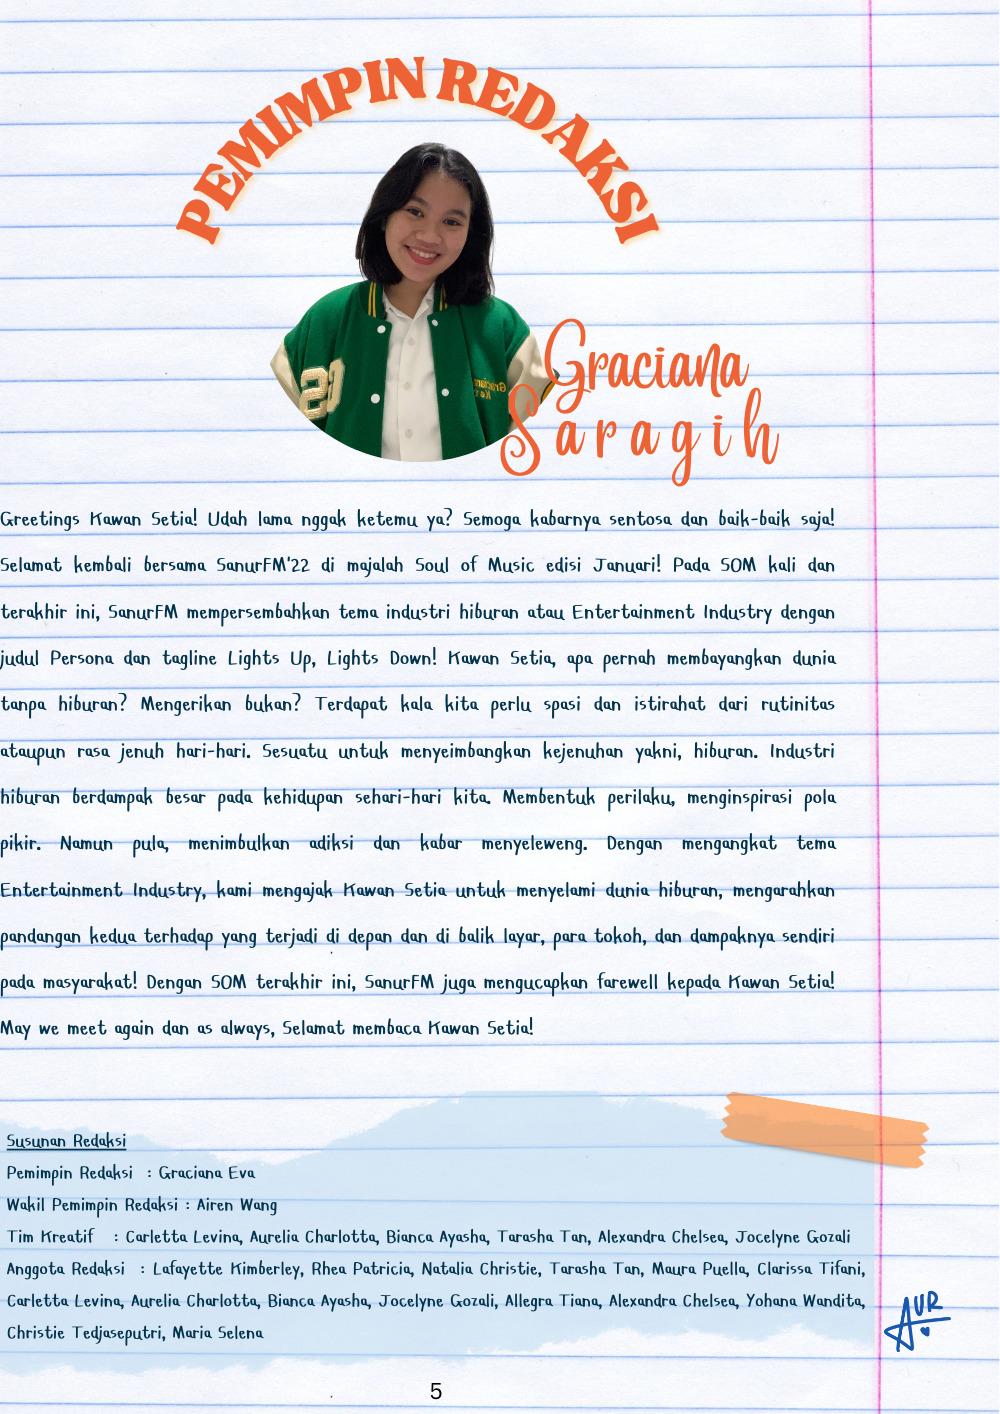 PEMIMPIN REDAKSI
Graciana
Saragih
Greetings Kawan Setia! Udah lama nggak ketemu ya? Semoga kabarnya sentosa dan baik-baik saja!
Selamat kembali bersama SanurFM'22 di majalah Soul of Music edisi Januari! Pada SOM kali dan
terakhir ini, SanurFM mempersembahkan tema industri hiburan atau Entertainment Industry dengan
judul Persona dan tagline Lights Up, Lights Down! Kawan Setia, apa pernah membayangkan dunia
tanpa hiburan? Mengerikan bukan? Terdapat kala kita perlu spasi dan istirahat dari rutinitas
ataupun rasa jenuh hari-hari. Sesuatu untuk menyeimbangkan kejenuhan yakni, hiburan. Industri
hiburan berdampak besar pada kehidupan sehari-hari kita. Membentuk perilaku, menginspirasi pola
pikir. Namun pula, menimbulkan adiksi dan kabar menyeleweng. Dengan mengangkat tema
Entertainment Industry, kami mengajak Kawan Setia untuk menyelami dunia hiburan, mengarahkan
pandangan kedua terhadap yang terjadi di depan dan di balik layar, para tokoh, dan dampaknya sendiri
pada masyarakat! Dengan SOM terakhir ini, SanurFM juga mengucapkan farewell kepada Kawan Setia!
May we meet again dan as always, Selamat membaca Kawan Setia!
Susunan Redaksi
Pemimpin Redaksi : Graciana Eva
Wakil Pemimpin Redaksi : Airen Wang
Tim Kreatif : Carletta Levina, Aurelia Charlotta, Bianca Ayasha, Tarasha Tan, Alexandra Chelsea, Jocelyne Gozali
Anggota Redaksi : Lafayette Kimberley, Rhea Patricia, Natalia Christie, Tarasha Tan, Maura Puella, Clarissa Tifani,
Carletta Levina, Aurelia Charlotta, Bianca Ayasha, Jocelyne Gozali, Allegra Tiana, Alexandra Chelsea, Yohana Wandita,
Christie Tedjaseputri, Maria Selena
AUR
5